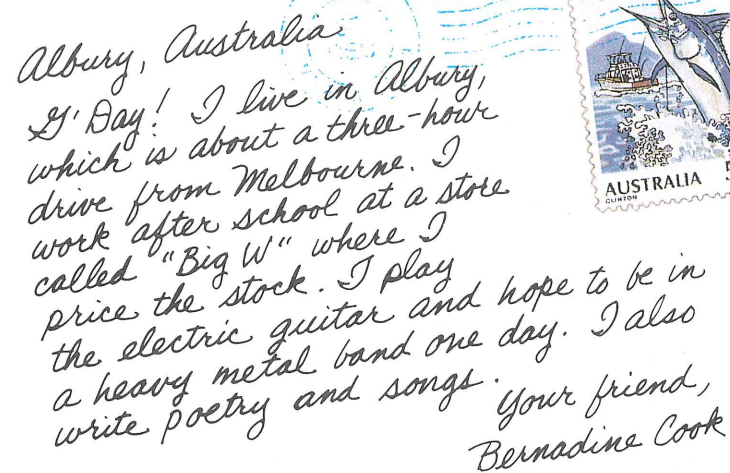 Albury, Australia
G'Day! I live in Albury,
which is about a three-hour
drive from Melbourne. I
work after school at a store
called "Big W" where I
price the stock. I play
the electric guitar and hope to be in
a heavy metal band one day. I also
write poetry and songs.
Your friend,
Bernadine Cook
AUSTRALIA 5
CLINTON